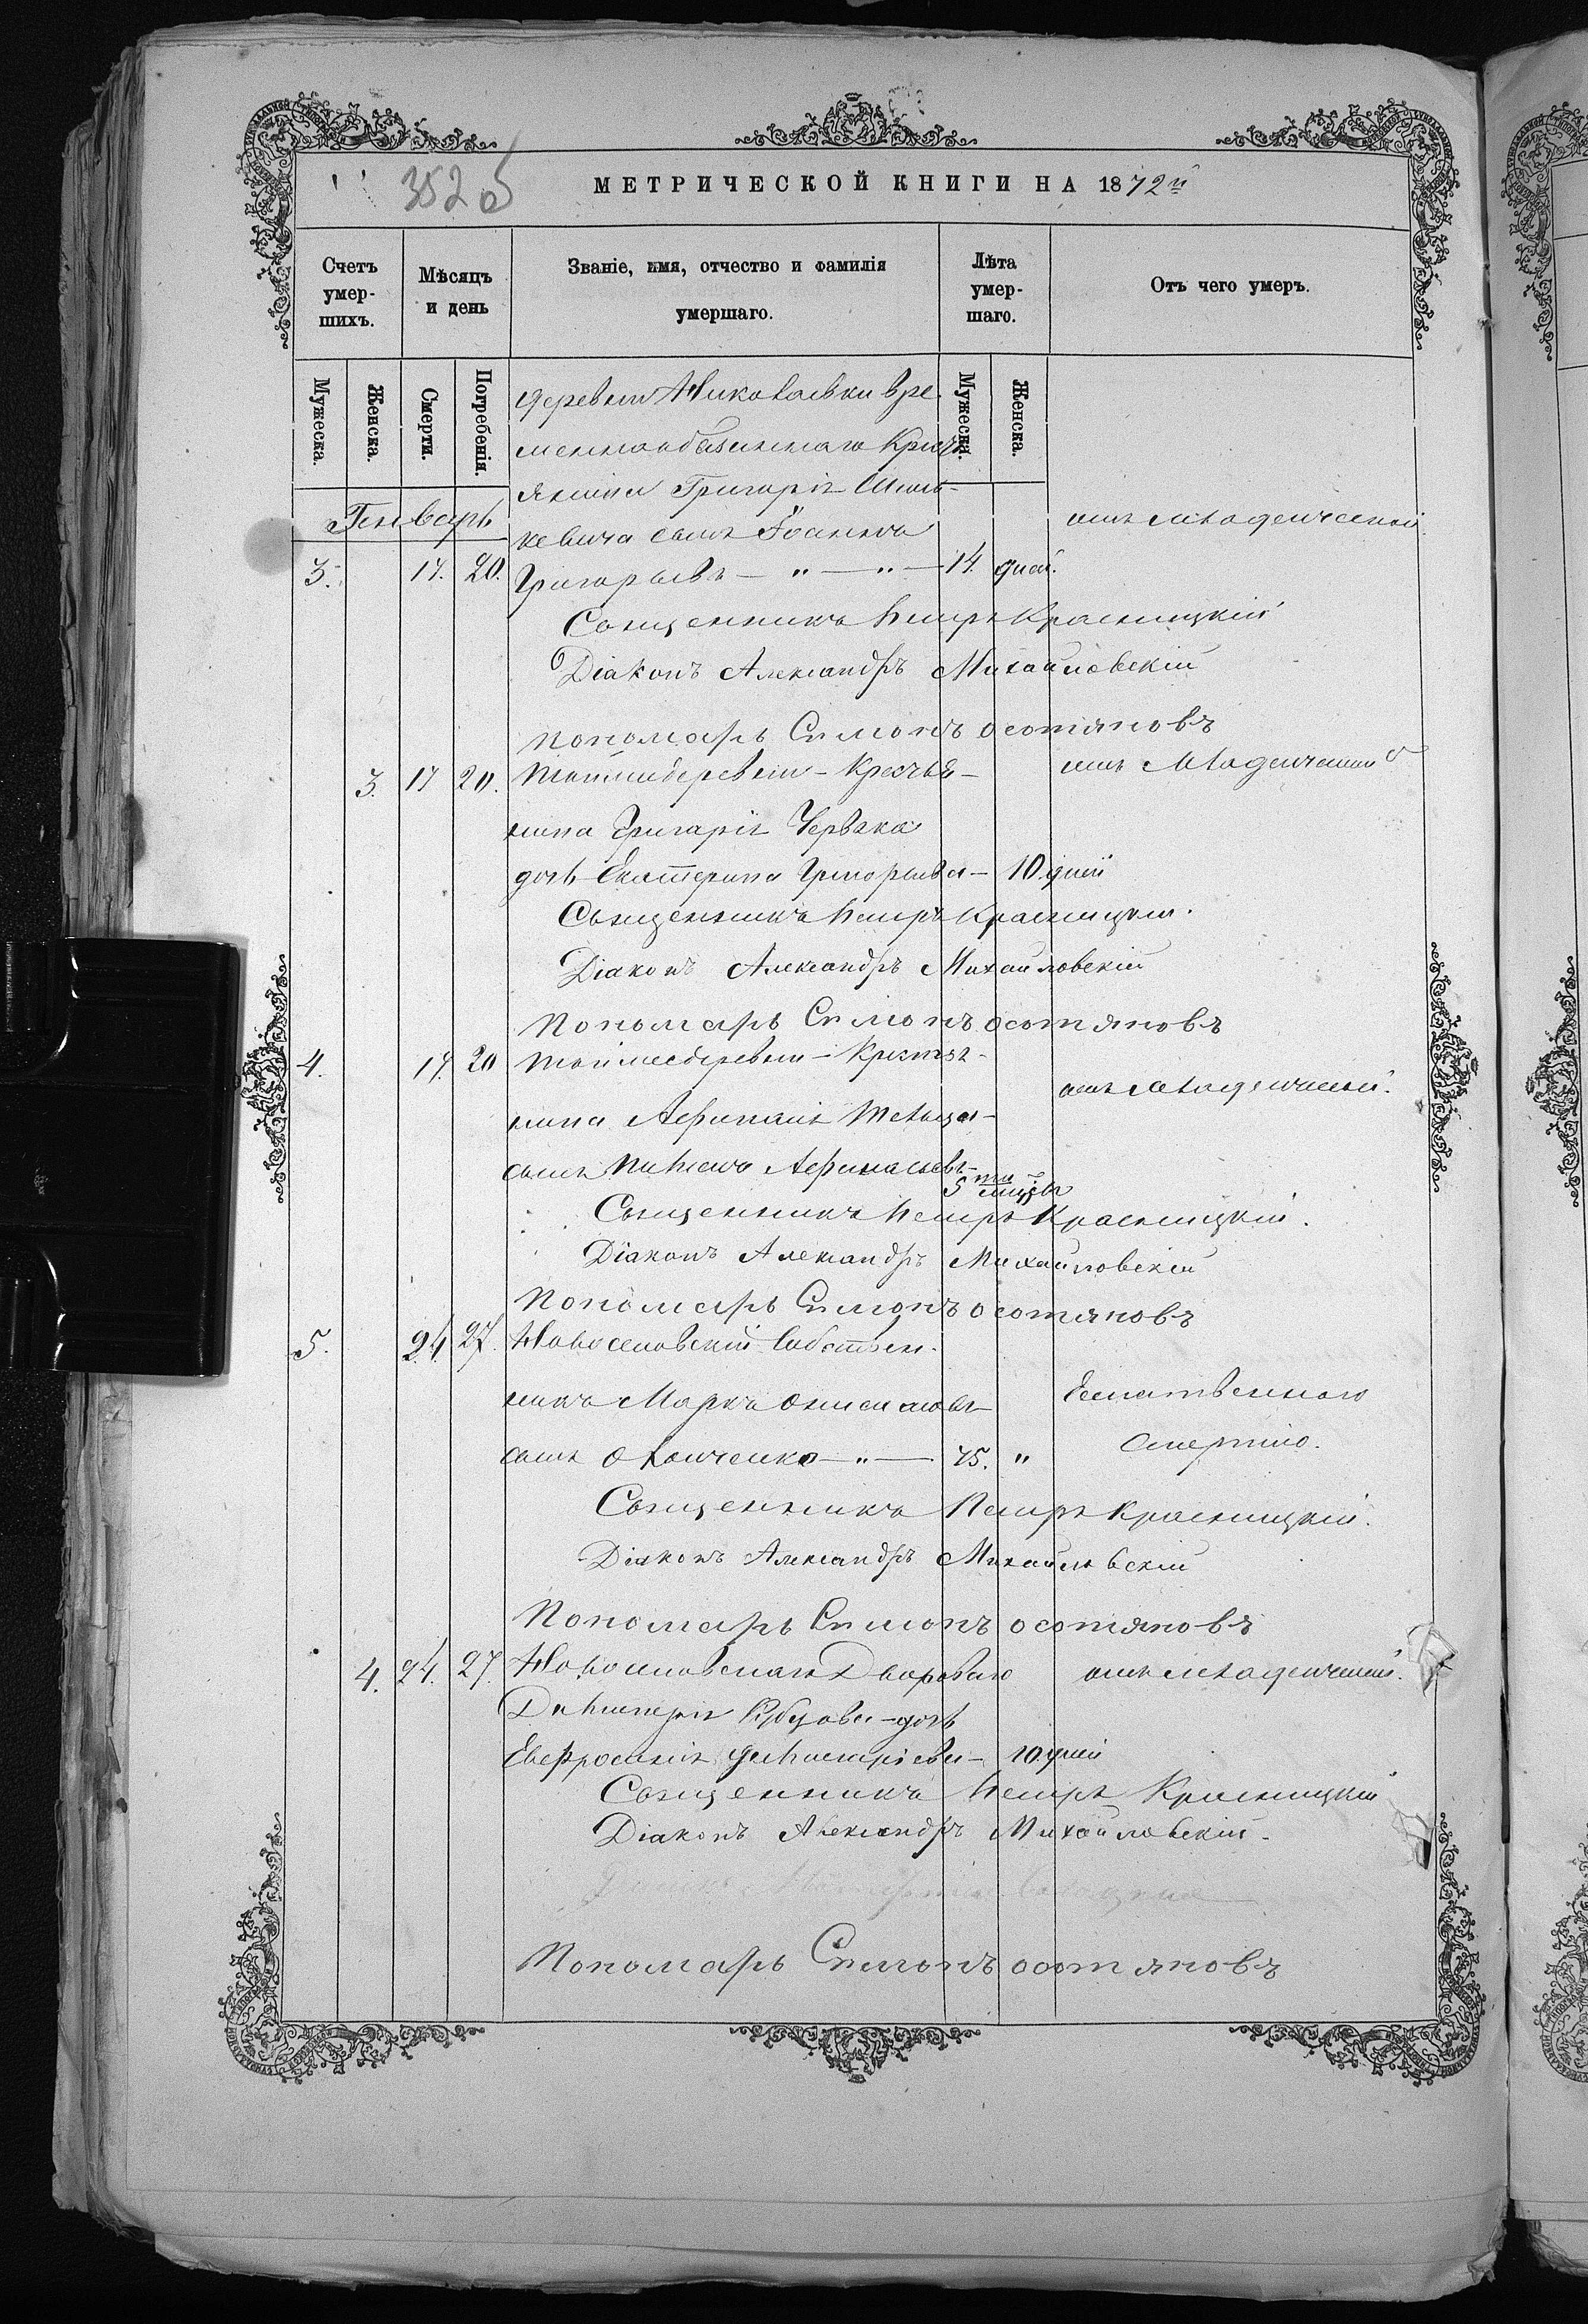 352 об
МЕТРИЧЕСКОЙ КНИГИ НА 1872й
Счетъ умершихъ.
Мѣсяцъ и день
Званіе, имя, отчество и фамилія умершаго.
Лѣта умершаго.
Отъ чего умеръ.
Мужеска.
Женска.
Смерти.
Погребенія.
Мужеска.
Женска.
Генварь
деревни Николаевки вре
меннообязаннаго Крить
янина Григорія
кевича сынъ Іоаннъ
отъ младенческой
3. 17. 20. Григорьевъ — " — " — 14. дней.
Священникъ Петръ Красницкій
Діаконъ Александръ Михайловскій
Пономарь Симонъ Остяновъ
3. 17 20. тойже деревни - Крестья-
отъ младенческой
нина Григорія Червяка
дочь Екатерина Григорьева - 10 дней
Священникъ Петръ Красницкій.
Діаконъ Александръ Михайловскій
Пономарь Симонъ Остяновъ
4. 17. 20 тойже деревни - Крестья-
отъ младенческой.
нина Афанасія
сынъ Афанасьевъ - 5ти мцевъ
Священникъ Петръ Красницкій.
Діаконъ Александръ Михайловскій
Пономарь Симонъ Остяновъ
5. 24. 27. Новоселовскій Собствен-
никъ Маркъ Онисимовъ
Естественною
сынъ — " — 75. "
Смертію.
Священникъ Петръ Красницкій.
Діаконъ Александръ Михайловскій
Пономарь Симонъ Остяновъ
4. 24. 27. Новоселовскаго Двороваго
отъ младенческой.
Димитрія дочь
Евфросинія Димитріева - 10 дней
Священникъ Петръ Красницкій
Діаконъ Александръ Михайловскій.
Пономарь Симонъ Остяновъ